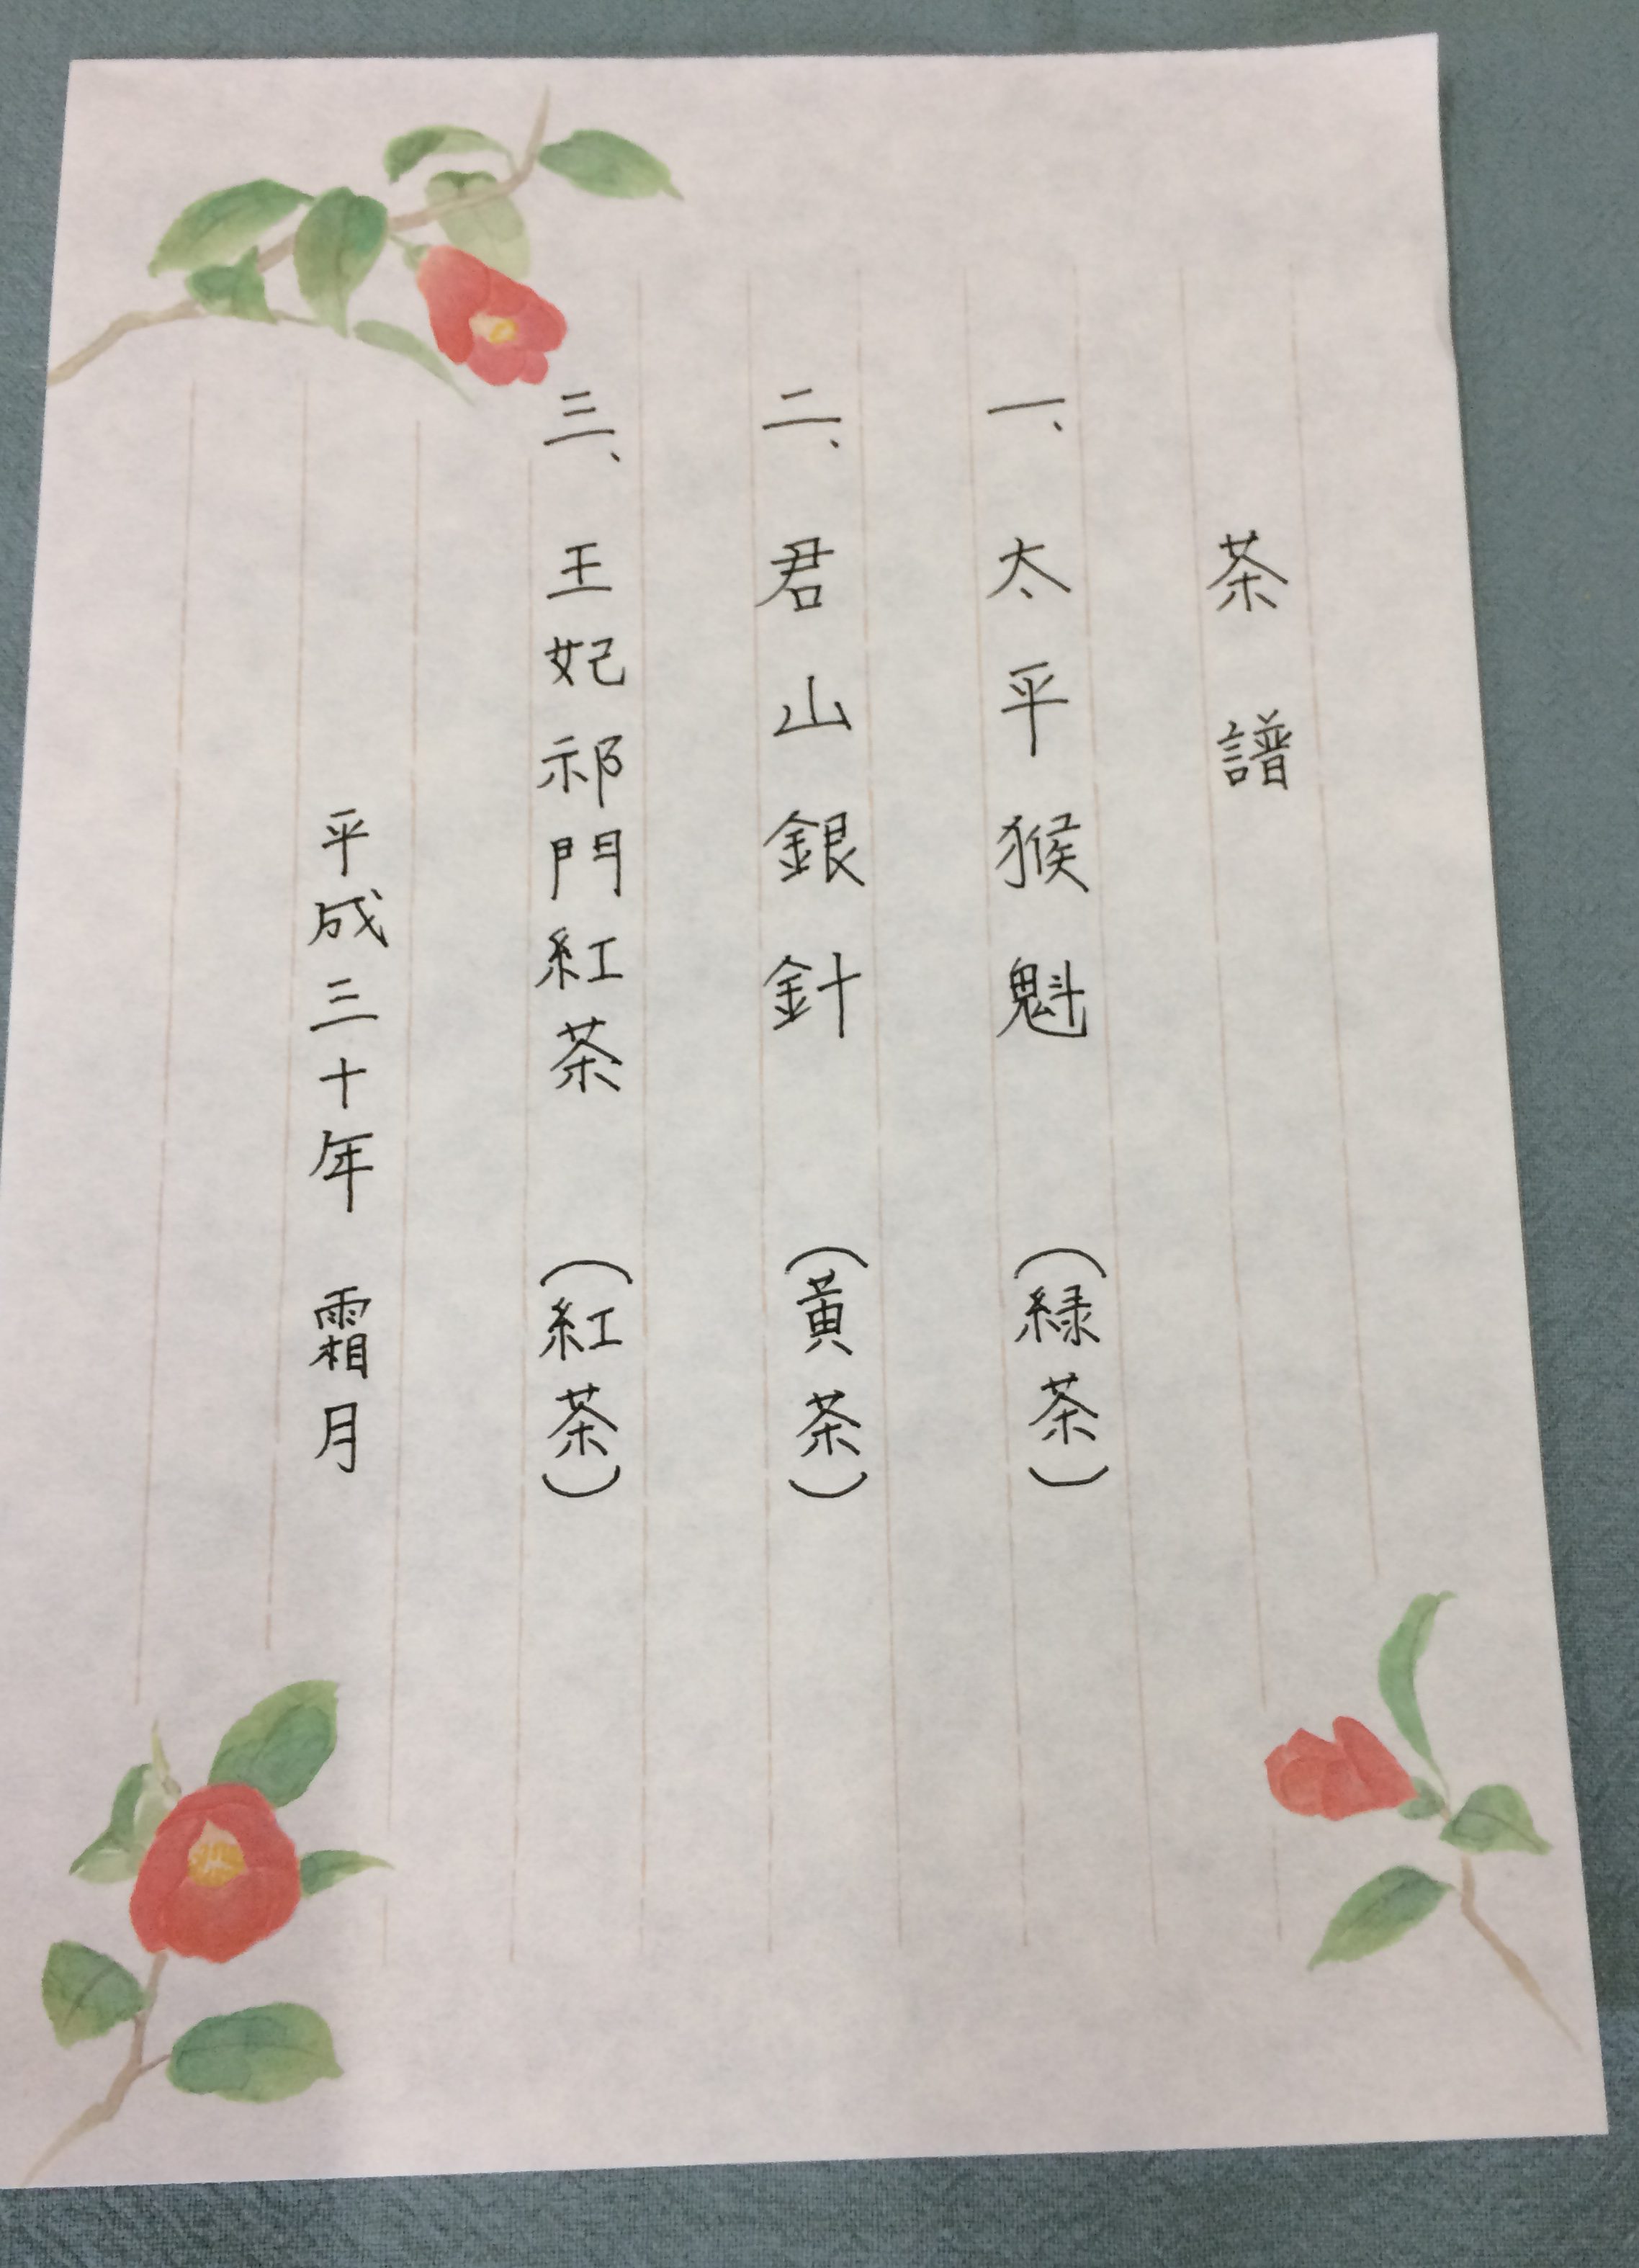 茶譜
一、太平猴魁 (緑茶)
二、君山銀針 (黄茶)
三、王妃祁門紅茶 (紅茶)
平成三十年 霜月